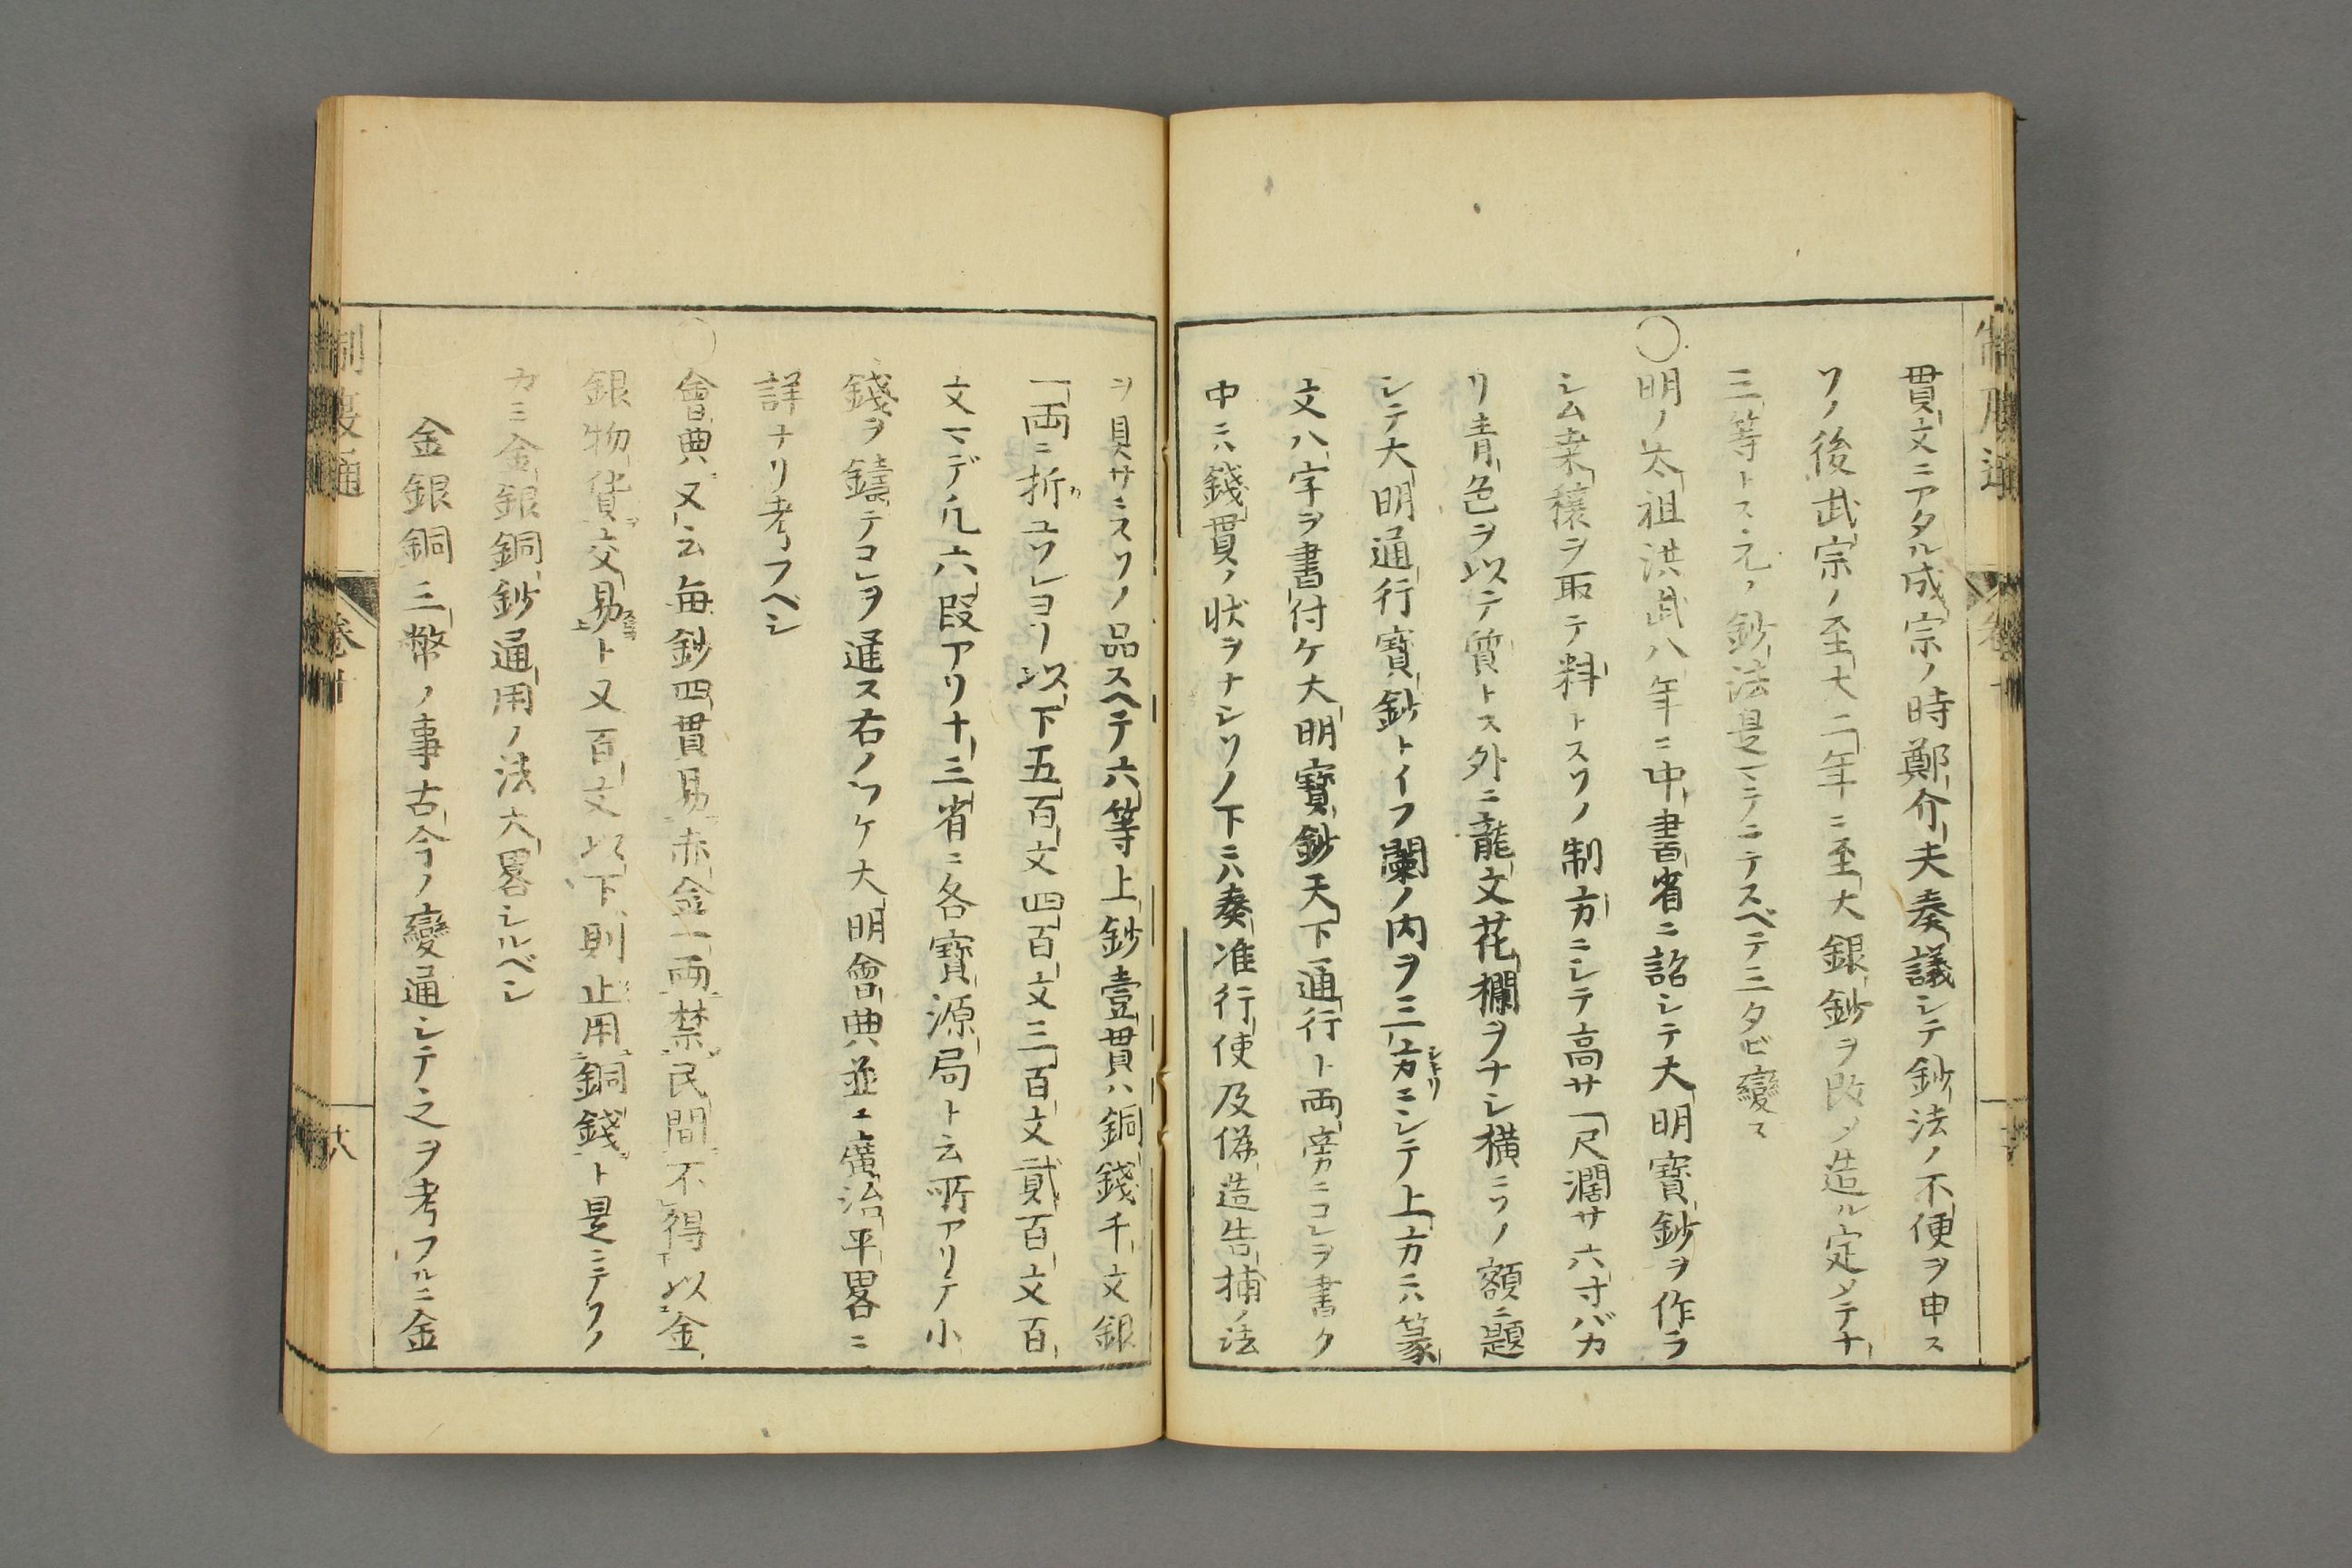 貫文ニアタル成宗ノ時鄭介夫奏議シテ鈔法ノ不便ヲ申ス
ソノ後武宗ノ至大二年ニ至大銀鈔ヲ改メ造ル定メテ十
三等トス元ノ鈔法是マテニテスベテ三タビ變ス
〇明ノ太祖洪武八年ニ中書省ニ詔シテ大明寶鈔ヲ作ラ
シム桒穰ヲ取テ料トスソノ制方ニシテ高サ一尺濶サ六寸バカ
リ青色ヲ以テ質トス外ニ龍文花欄ヲナシ横ニソノ額ニ題
シテ大明通行寶鈔トイフ闌ノ内ヲ三方ニシテ上方ニハ篆
文八字ヲ書付ケ大明寶鈔天下通行ト両旁ニコレヲ書ク
中ニハ錢貫ノ状ヲナシソノ下ニハ奏准行使及偽造告捕ノ法
ヲ具サニスソノ品スヘテ六等上鈔壹貫ハ銅錢千文銀
一両ニ折ユソレヨリ以下五百文四百文三百文貳百文百
文マデ凡六叚アリ十三省ニ各寶源局ト云所アリテ小
錢ヲ鑄テコレヲ通ス右ノワケ大明會典並ニ廣治平畧ニ
詳ナリ考フベシ
〇會典又云毎鈔四貫易赤金一両禁民間不得以金
銀物貨交易ト又百文以下則止用銅錢ト是ニテソノ
カミ金銀銅鈔通用ノ法大畧シルベシ
金銀銅三幣ノ事古今ノ變通シテ之ヲ考フルニ金
制度通
卷十
十八